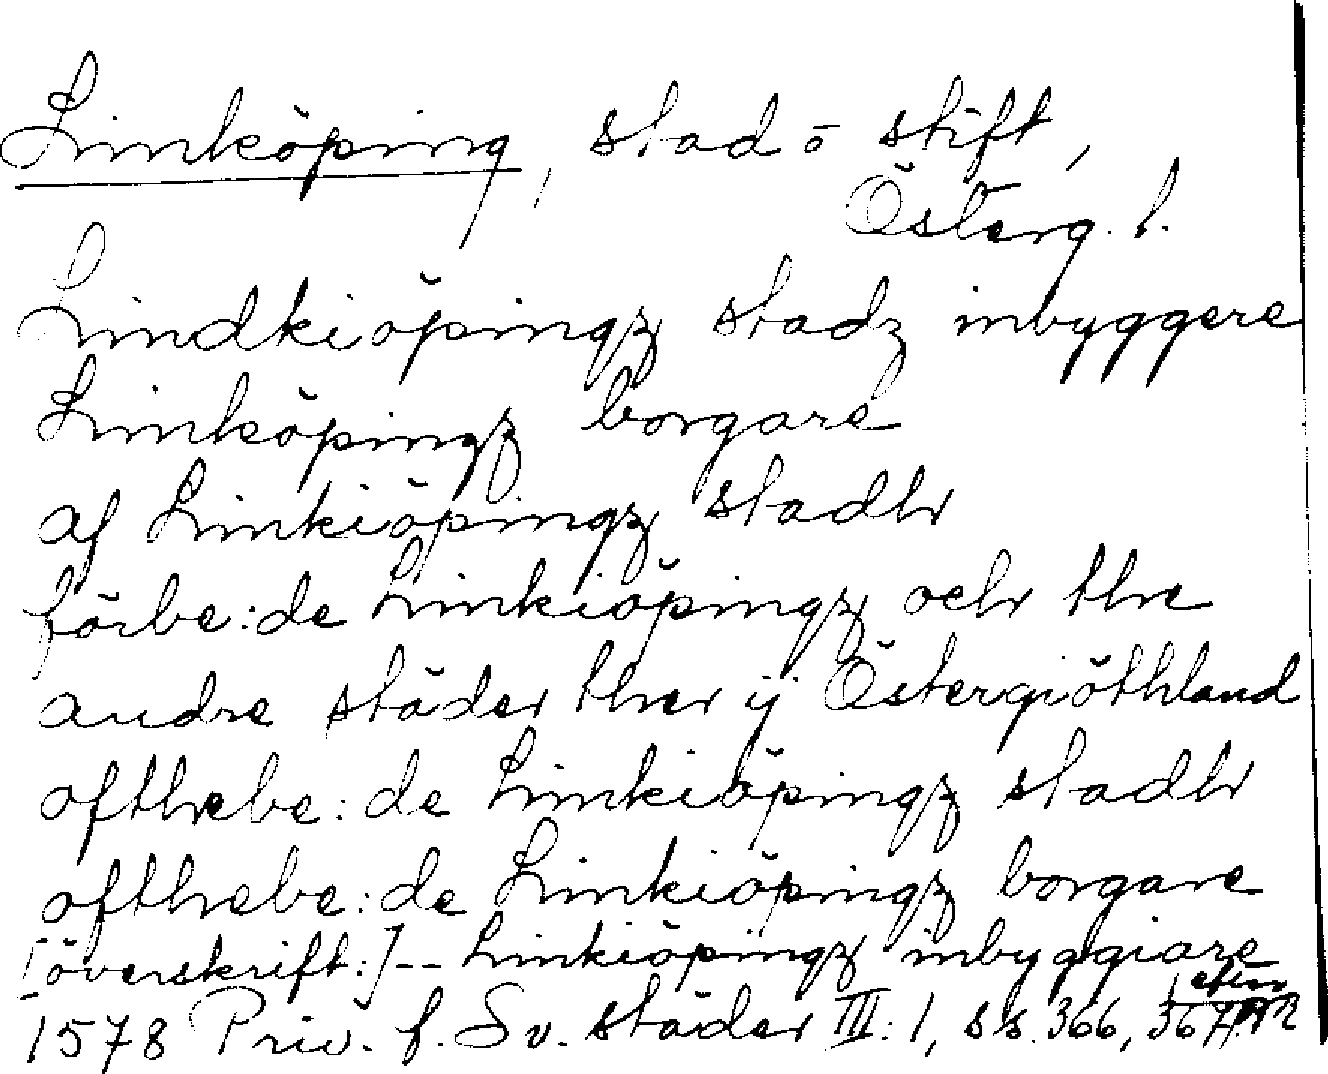 Linköping, stad o stift,
Österg. l.
Lindkiöpingz stadz inbyggere
Linköpingz borgare
af Linkiöpingz stadh
förbe:de Linkiöpingz och the
andre städer ther ij Östergiöthland
ofthebe:de Linkiöpingz stadh
ofthebe:de Linkiöpingz borgare
[överskrift:]-- Linkiöpingz inbyggiare
1578 Priv. f. Sv. städer III:1, ss. 366, 367